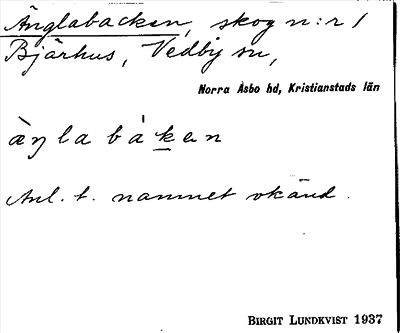 Änglabacken, skog n:r 1
Bjärhus, Vedby sn,
Norra Åsbo hd, Kristianstads län
àŋlabákan
Anl. t. namnet okänd.
BIRGIT LUNDKVIST 1937